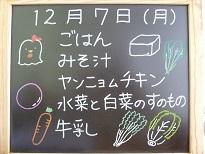 12月7日(月)
ごはん
みそ汁
ヤンニョムチキン
水菜と白菜のすのもの
牛乳